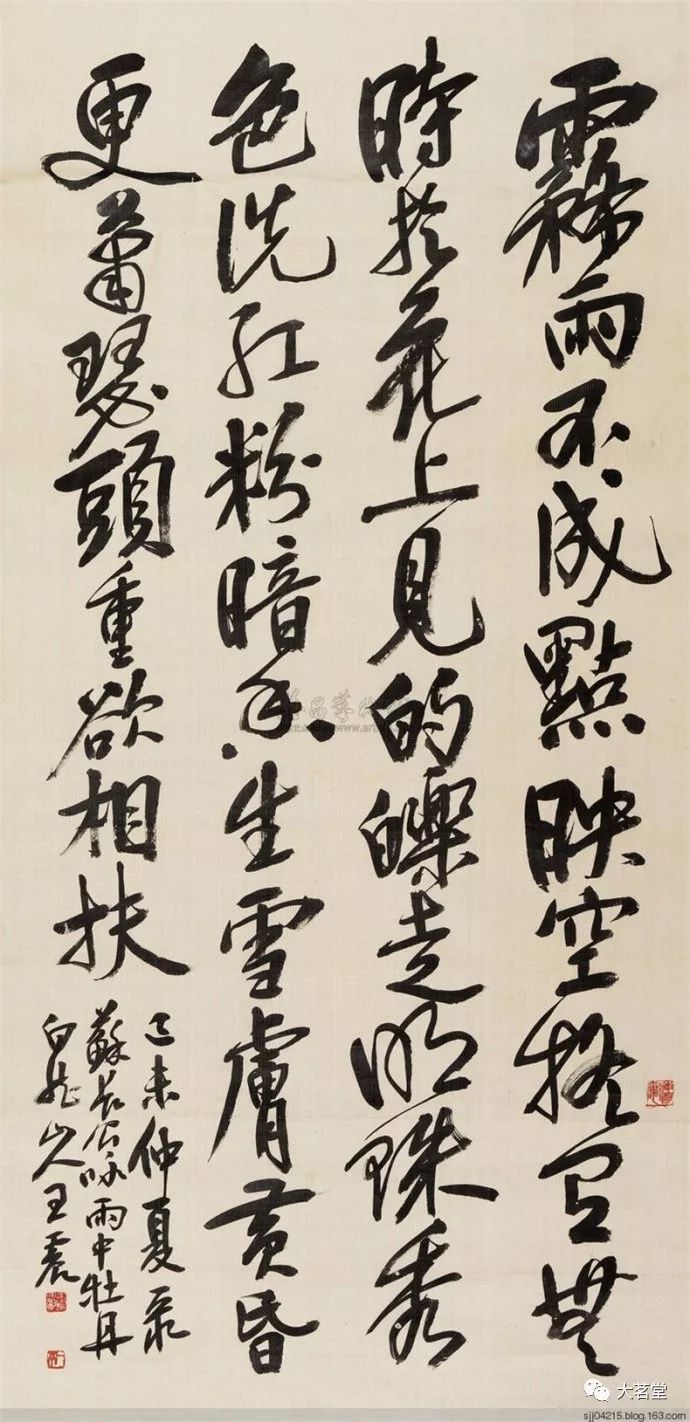 霧雨不成點映空疑有無
時於花上見的皪走明珠秀
色洗紅粉暗香生雪膚黃昏
更蕭瑟頭重欲相扶
己未仲夏录
蘇長公咏雨中牡丹
白龍山人王震
大茗堂
sjj04215.blog.163.com